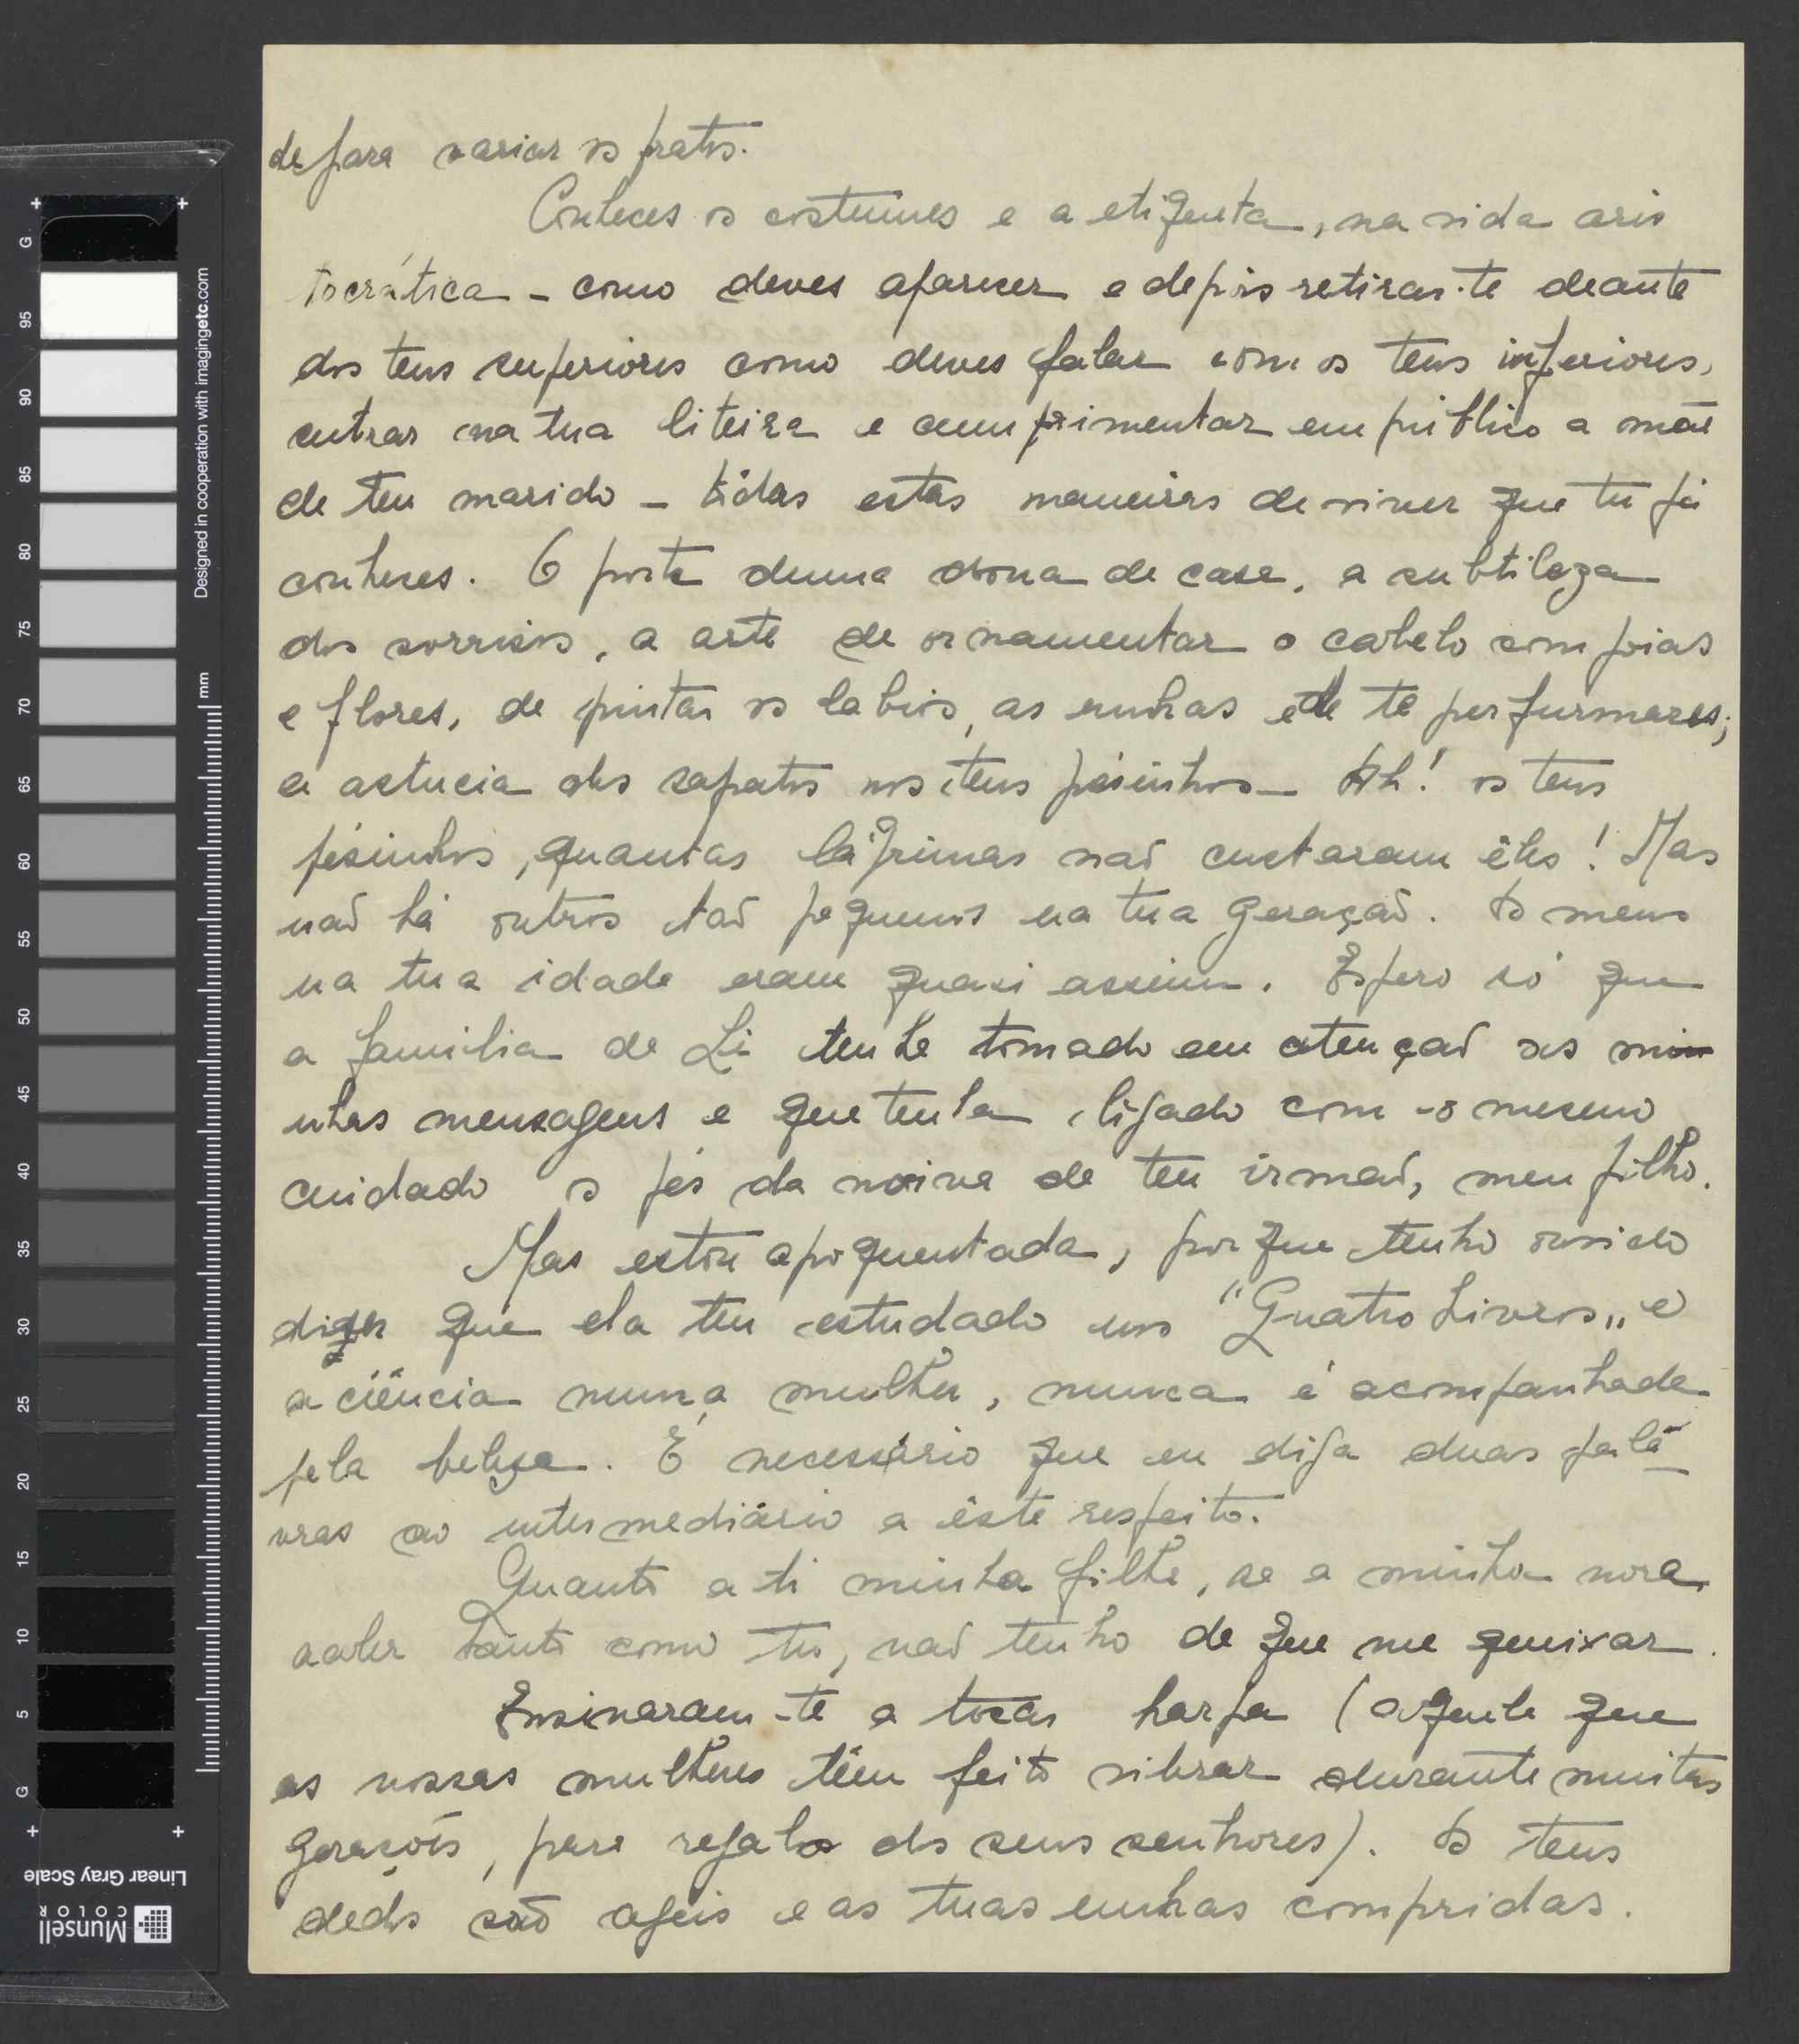 de para variar os pratos.
Conheces os costumes e a etiqueta, na vida aris
tocrática - como deves aparecer e depois retirar-te deante
dos teus superiores como deves falar com os teus inferiores,
entrar na tua liteira e cumprimentar em publico a mãe
de teu marido - tôdas estas maneiras de viver que tu já
conheces. O porte duma dona de casa, a subtileza
dos sorrisos, a arte de ornamentar o cabelo com joias
e flores, de pintar os labios, as unhas e de te perfumares;
a astucia dos sapatos nos teus pésinhos - Ah! os teus
pésinhos, quantas lágrimas não custaram êles! Mas
não há outros tão pequenos na tua geração. Os meus
na tua idade eram quasi assim. Espero só que
a familia de Li tenha tomado em atenção as mi
nhas mensagens e que tenha ligado com o mesmo
cuidado os pés da noiva de teu irmão, meu filho.
Mas estou apoquentada, porque tenho ouvido
dizer que ela tem estudado nos "Quatro Livros" e
a ciência numa mulher, nunca é acompanhada
pela beleza. É necessário que eu diga duas pala
vras ao intermediário a êste respeito.
Quanto a ti minha filha, se a minha nora
valer tanto como tu, não tenho de que me queixar.
Ensinaram-te a tocar harpa (aquela que
as nossas mulheres têem feito vibrar durante muitas
gerações, para regalo dos seus senhores). Os teus
dedos são ageis e as tuas unhas compridas.
Designed in cooperation with imagingetc.com
mm
G
95
90
85
80
75
70
65
60
55
50
45
40
35
30
25
20
15
10
5
G
Linear Gray Scale
Munsell
COLOR